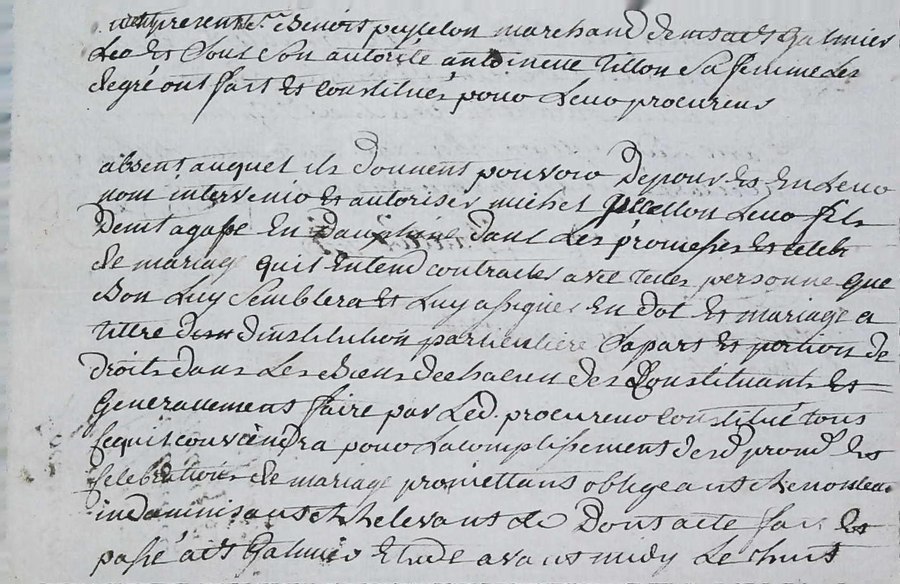 present Sr. Benoist peyssellon marchand de st Galmier
Leq et sous son autorité antoinette Tillon sa femme Les
de gré ont fait et constitués pour Leur procureur
absent, auquel ils donnent pouvoir De pour et En Leur
nom intervenir et autoriser michel Leur fils
Dem.t En Dauphiné dans Les promesses et celeb
de mariage quil Entend contracter avec telle personne que
Bon Luy semblera et Luy assigner En dot et mariage a
tittre dinstitution particuliere sa part et portion de
droits dans Les Biens de chacun des Constituants et
Generallement faire par Led. procureur constitué tous
ce quil conviendra pour Lacomplissement desd prom.s et
celebration de mariage promettans obligeans
indamnisans et Relevans &a Dont acte fait et
passé a st Galmier Etude avant midy Le huit